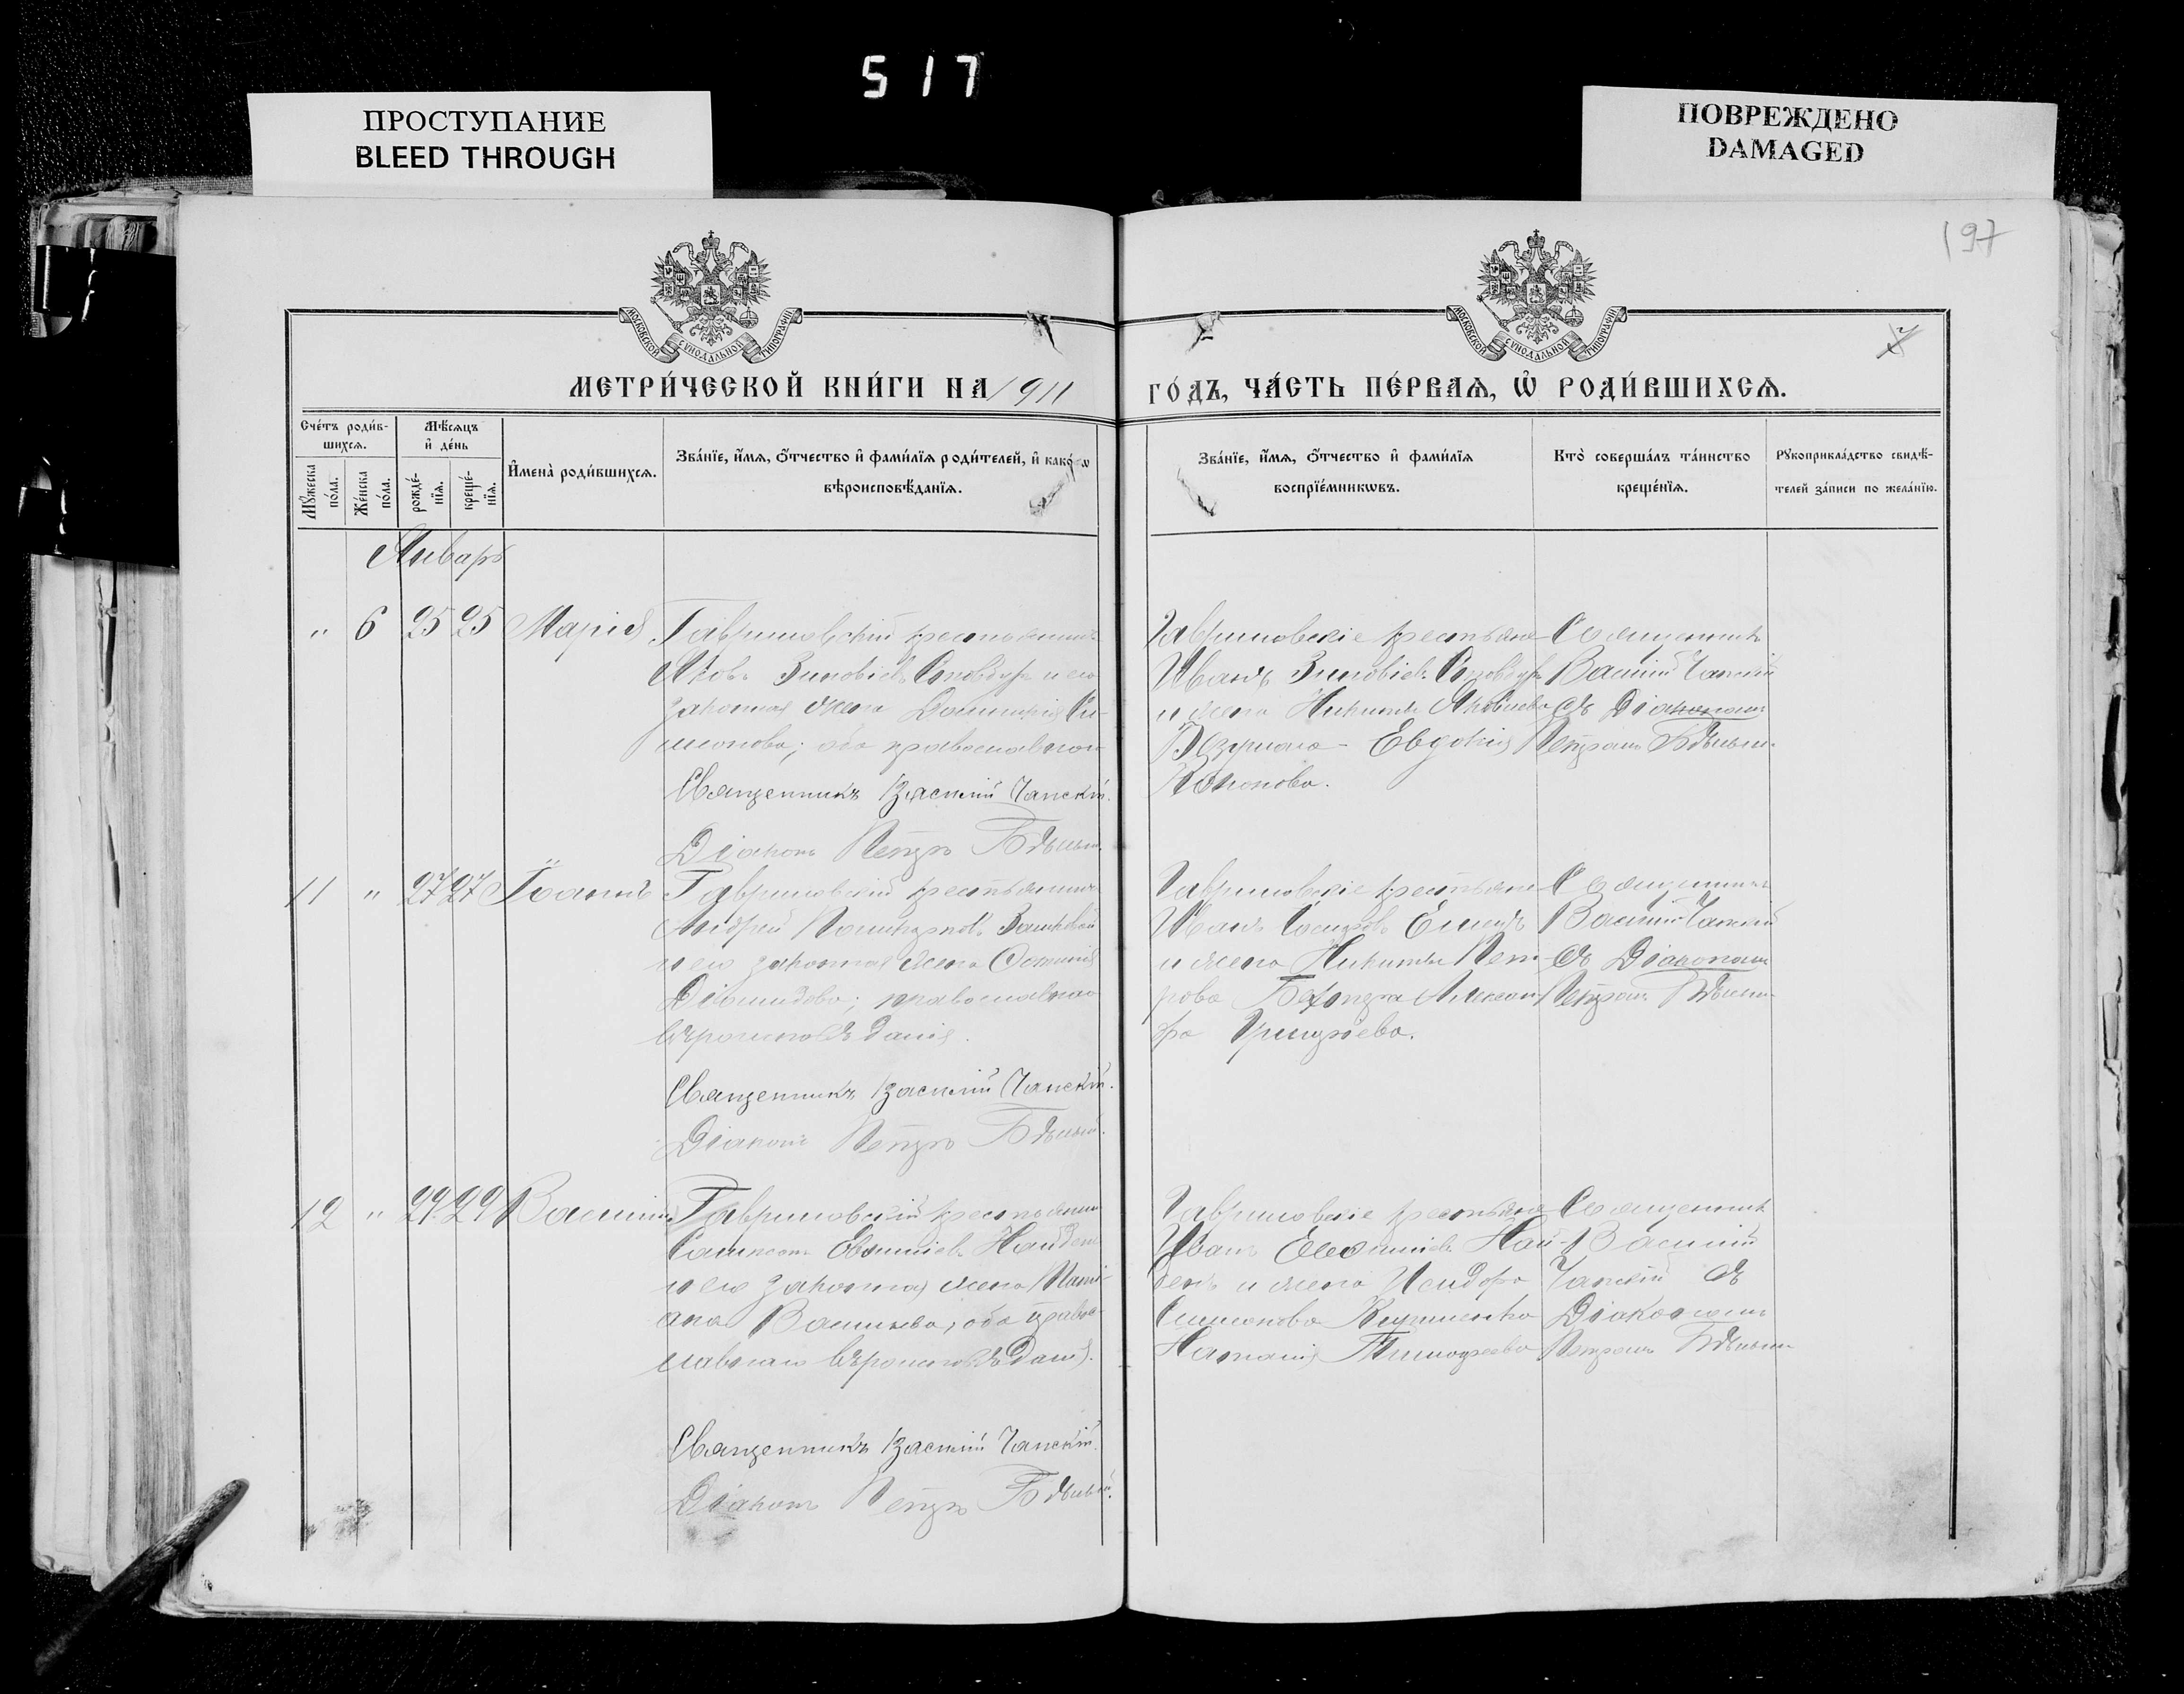 517
ПРОСТУПАНИЕ
BLEED THROUGH
ПОВРЕЖДЕНО
DAMAGED
197
МОСКОВСКОЙ СѴНОДАЛЬНОЙ ТИПОГРАФІИ
МОСКОВСКОЙ СѴНОДАЛЬНОЙ ТИПОГРАФІИ
МЕТРИ́ЧЕСКОЙ КНИ́ГИ НА 1911
ГО́ДЪ, ЧА́СТЬ ПЕ́РВАѦ, Ѡ҆ РОДИ́ВШИХСѦ.
Сче́тъ роди́в-
шихсѧ.
Мꙋ́жеска по́ла.
Же́нска по́ла.
Мѣ́сѧцъ
и҆ де́нь
рожде́-
нїѧ.
креще́-
нїѧ.
И҆мена̀ роди́вшихсѧ.
Зва́нїе, и҆́мѧ, ѻ҆́тчество и҆ фами́лїѧ роди́телей, и҆ како́гѡ
вѣроисповѣ́данїѧ.
Зва́нїе, и҆́мѧ, ѻ҆́тчество и҆ фами́лїѧ
воспрїе́мникѡвъ.
Кто̀ соверша́лъ та́инство
креще́нїѧ.
Рꙋкоприкла́дство свидѣ́-
телей за́писи по жела́нїю.
Январь
" 6 25 25 Марія
Гавриловскій крестьянинъ
Яковъ Зиновіевъ и его
законная жена
оба православнаго
Священникъ Василій Чапскій.
Діаконъ Петръ Бѣлый.
Гавриловскіе крестьяне
Иванъ Зиновіевъ
и жена Никиты Яковлева
Евдокія
Кононова.
Священникъ
Василій Чапскій
съ Діакономъ
Петромъ Бѣлымъ.
11 " 27 27 Іоаннъ
Гавриловскій крестьянинъ
Андрей
и его законная жена
Діомидова; православнаго
вѣроисповѣданія.
Священникъ Василій Чапскій.
Діаконъ Петръ Бѣлый.
Гавриловскіе крестьяне
Иванъ
и жена Никиты Пет-
рова Алексан-
дра Григорьева.
Священникъ
Василій Чапскій
съ Діакономъ
Петромъ Бѣлымъ
12 " 29 29 Василій
Гавриловскій крестьянинъ
Самсонъ Найденъ
и его законная жена Тати-
ана Васильева, оба право-
славнаго вѣроисповѣданія.
Священникъ Василій Чапскій.
Діаконъ Петръ Бѣлый.
Гавриловскіе крестьяне
Иванъ Най-
денъ и жена Исидора
Симонова
Наталія Тимофеева
Священникъ
Василій
Чапскій съ
Діакономъ
Петромъ Бѣлымъ